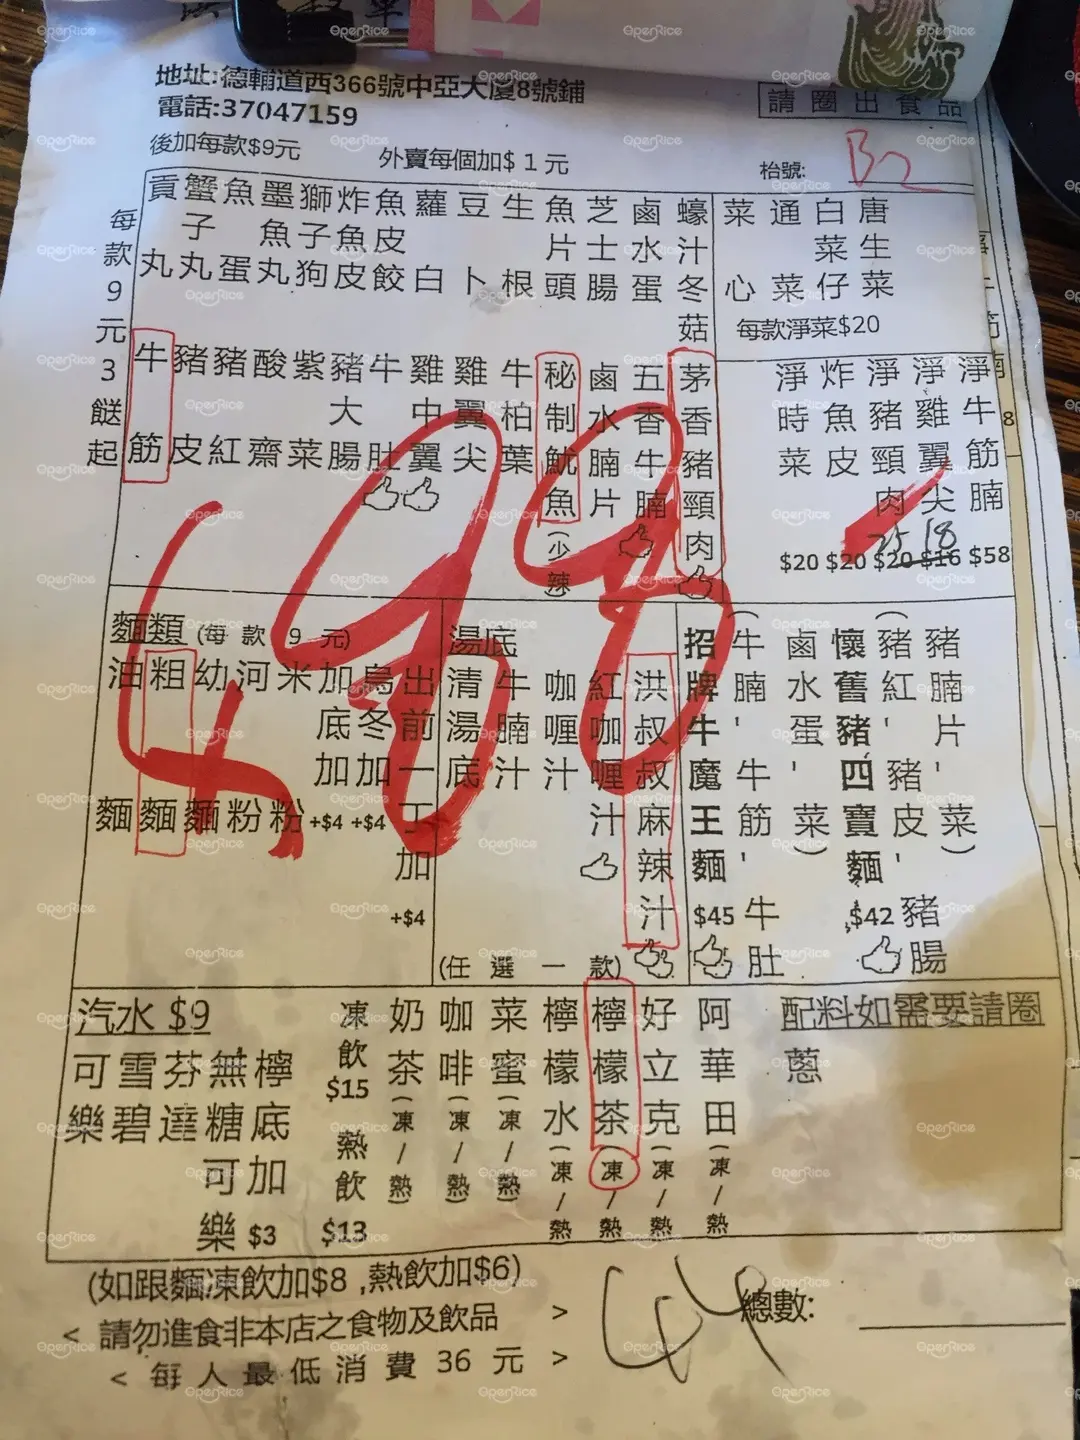 地址:德輔道西366號中亞大廈8號鋪
電話:37047159
請圈出食品
後加每款$9元
外賣每個加$1元
枱號: B2
每款9元3餸起
貢丸
蟹子丸
魚蛋
墨魚丸
獅子狗
炸魚皮
魚皮餃
蘿白
豆卜
生根
魚片頭
芝士腸
鹵水蛋
蠔汁冬菇
菜心
通菜
白菜仔
唐生菜
每款淨菜$20
牛筋
豬皮
豬紅
酸齋
紫菜
豬大腸
牛肚
雞中翼
雞翼尖
牛柏葉
秘制魷魚(少辣
鹵水腩片
五香牛腩
茅香豬頸肉
淨時菜 $20
炸魚皮 $20
淨豬頸肉 $20 25
淨雞翼尖 $16 18
淨牛筋腩 $58
麵類(每款9元)
油麵
粗麵
幼麵
河粉
米粉
加底加+$4
烏冬加+$4
出前一丁加+$4
湯底
清湯底
牛腩汁
咖喱汁
紅咖喱汁
洪叔叔麻辣汁
(任選一款)
招牌牛魔王麵 $45
(牛腩'牛筋'牛肚
鹵水蛋'菜)
懷舊豬四寶麵 $42
(豬紅'豬皮'豬腸
豬腩片'菜)
汽水 $9
可樂
雪碧
芬達
無糖可樂
檸底加$3
凍飲$15
熱飲$13
奶茶(凍/熱)
咖啡(凍/熱)
菜蜜(凍/熱)
檸檬水(凍/熱
檸檬茶(凍/熱
好立克(凍/熱
阿華田(凍/熱
配料如需要請圈
蔥
(如跟麵凍飲加$8,熱飲加$6)
<請勿進食非本店之食物及飲品>
<每人最低消費36元>
44
總數:
OpenRice